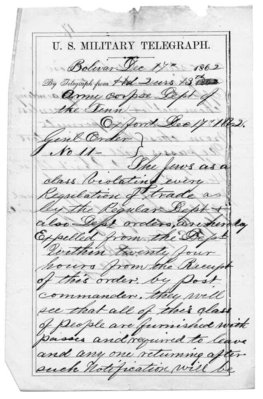 U. S. MILITARY TELEGRAPH.
Bolivar Dec 17th 1862
By Telegraph from Hd Qurs 13th
Army corps Dept of
the Tenn
Oxford Dec 17th 1862.
Genl Order
No 11
The Jews as a
class violating every
Regulation of trade as
by the
also Dept orders, are hereby
Expelled from the Dept
Within twenty four
hours from the Receipt
of this order by post
commander, they will
see that all of this class
of people are furnished with
passes and required to leave
and any one returning after
such Notification will be